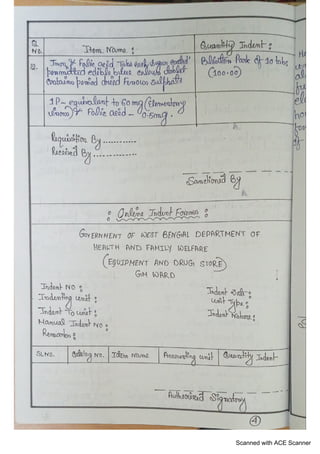 SL No.
Item Name :
Quantity Indent :
12.
Iron & Folic acid Tabs each sugar coated
Blister Pack of 10 tabs
permitted edible colour tablet
(100.00)
contains dried Ferrous sulphate
I.P - equivalent to 60 mg (Elementary
Iron) & Folic acid - 0.5mg.
Requisition By ............
Received By ..............
Sanctioned By
: Online Indent Format :
GOVERNMENT OF WEST BENGAL DEPARTMENT OF
HEALTH AND FAMILY WELFARE
(EQUIPMENT AND DRUG STORE)
GM WARD
Indent No :
Indent Date :
Indenting unit :
unit Type :
Indent To unit :
Indent Nature :
Manual Indent No :
Remarks :
SL NO. Catalog No. Item Name Accounting unit Quantity Indent
Authorised Signatory
4
Scanned with ACE Scanner